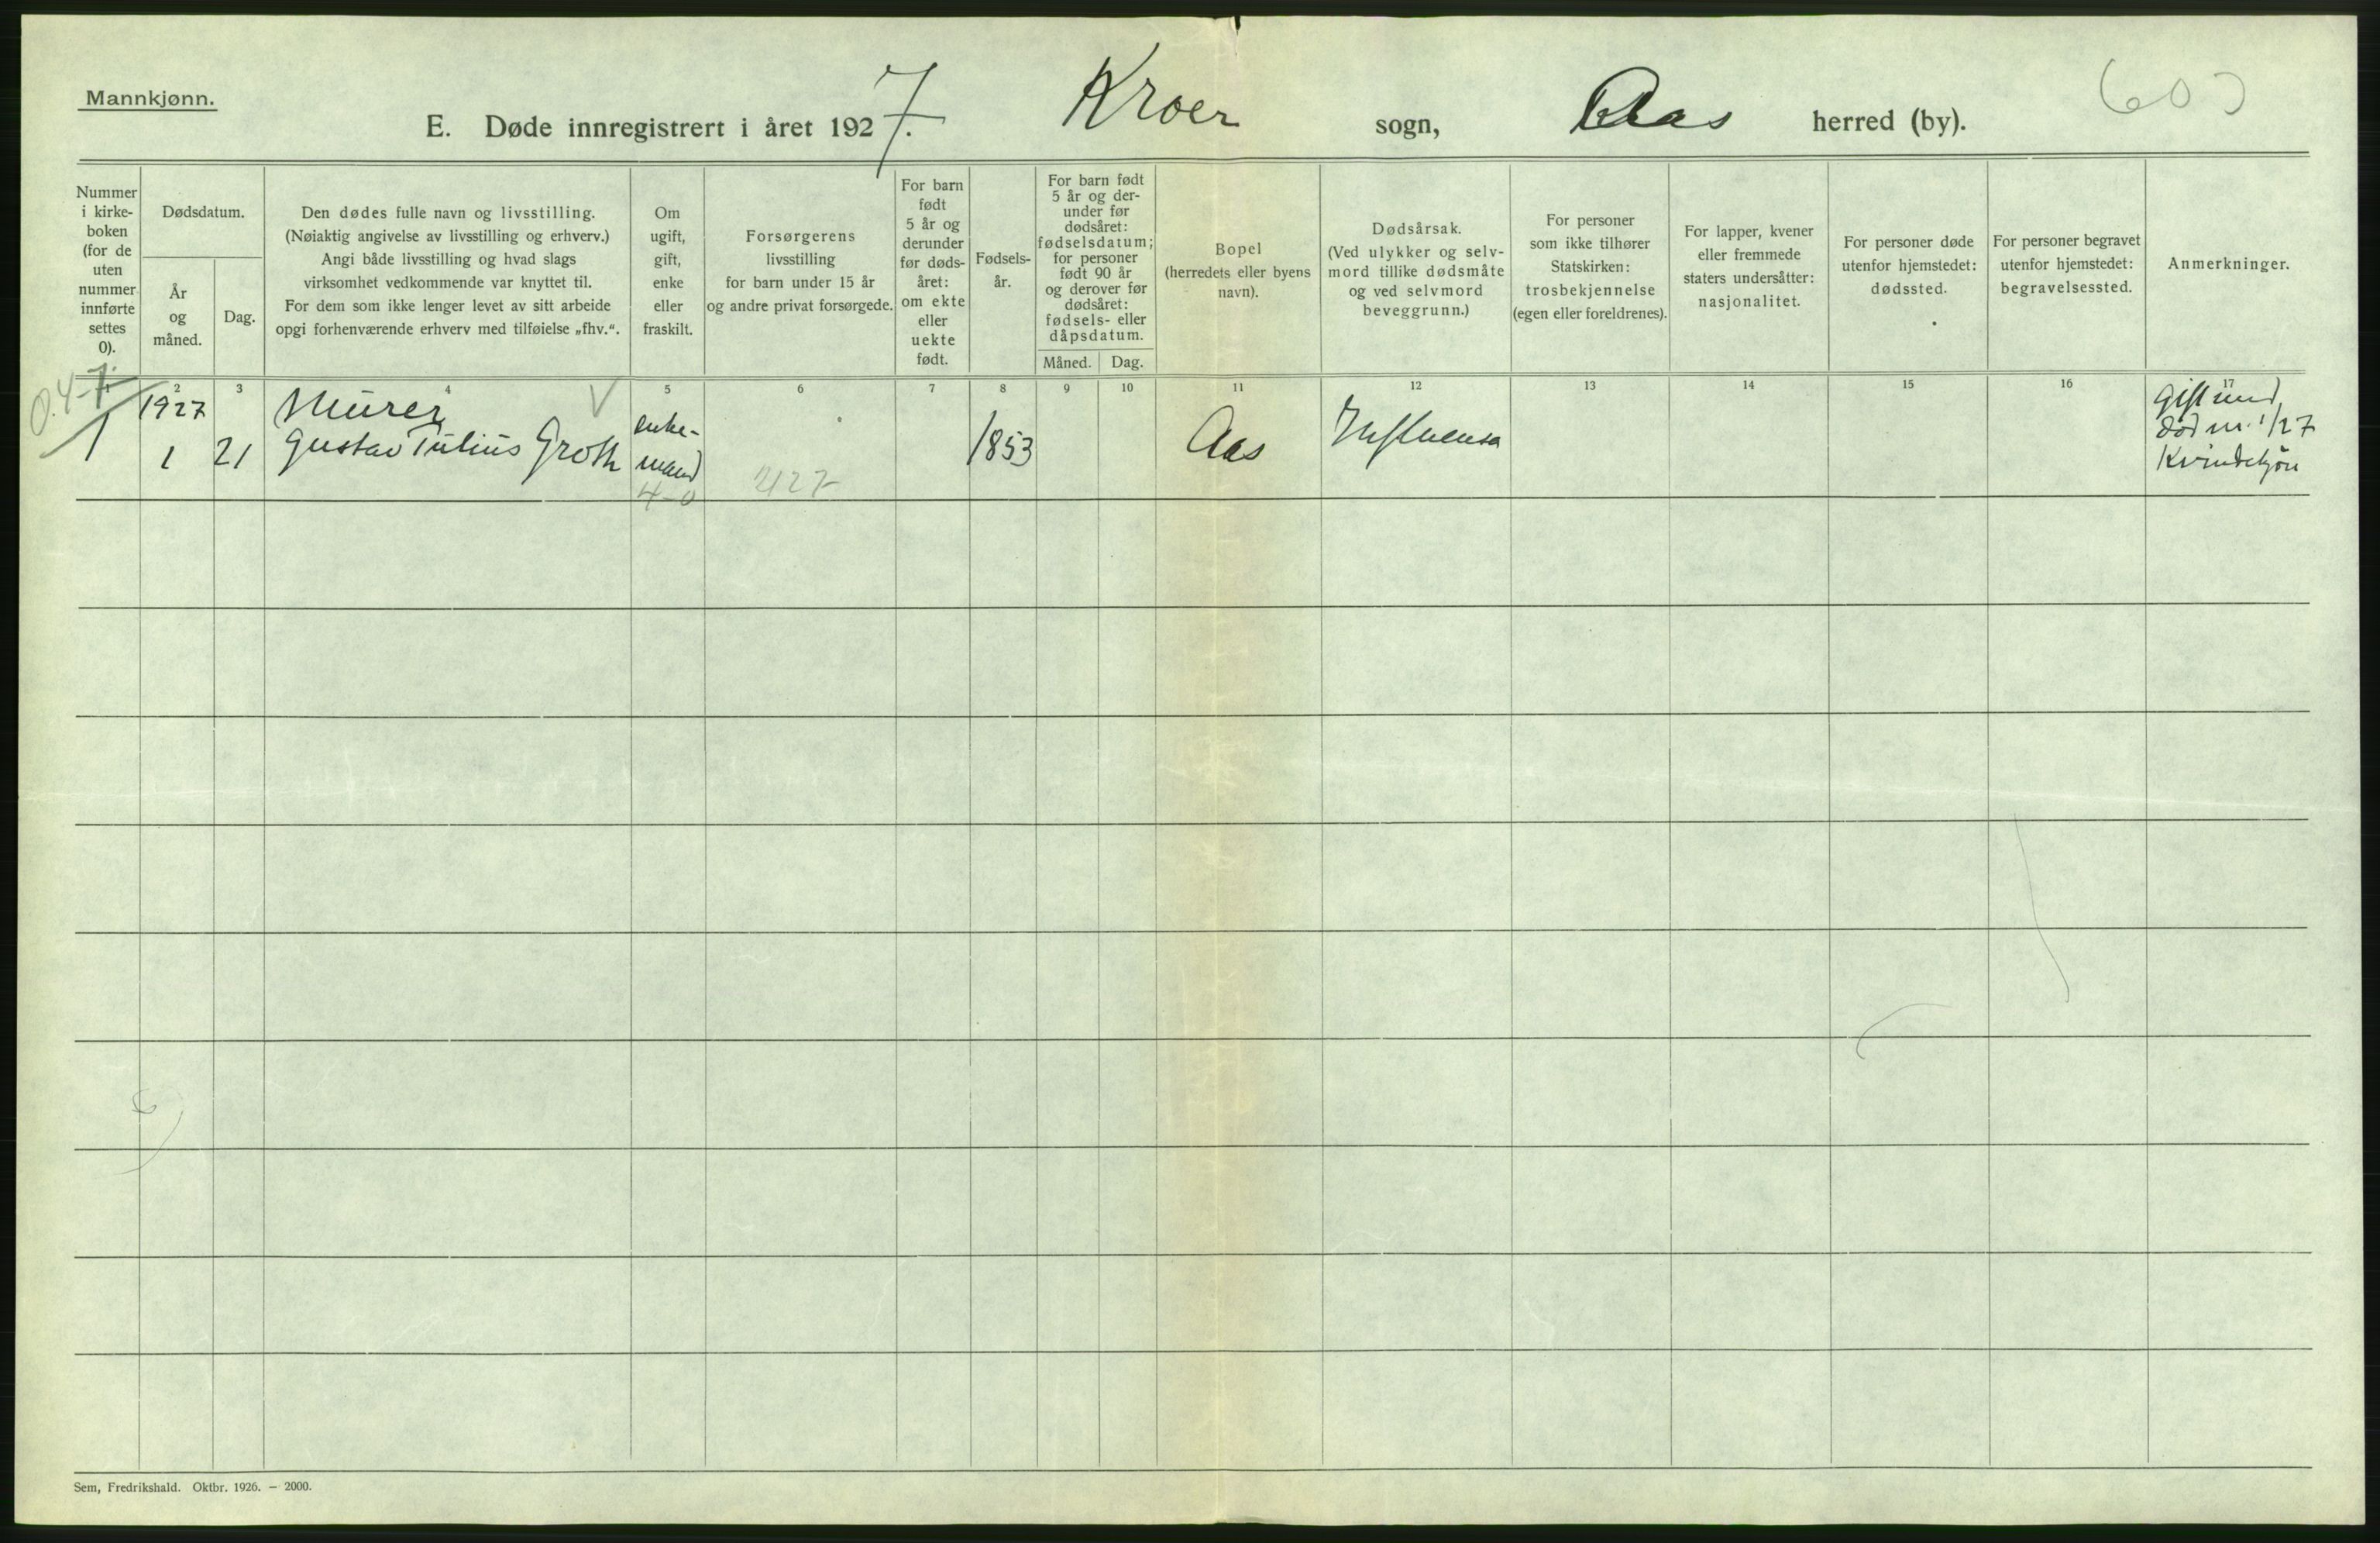 Mannkjønn.
E. Døde innregistrert i året 1927. Kroer sogn, Aas herred (by).
Nummer
i kirke-
boken
(for de
uten
nummer
innførte
settes
0).
Dødsdatum.
År
og
måned.
Dag.
Den dødes fulle navn og livsstilling.
(Nøiaktig angivelse av livsstilling og erhverv.)
Angi både livsstilling og hvad slags
virksomhet vedkommende var knyttet til.
For dem som ikke lenger levet av sitt arbeide
opgi forhenværende erhverv med tilføielse „fhv.“.
Om
ugift,
gift,
enke
eller
fraskilt.
Forsørgerens
livsstilling
for barn under 15 år
og andre privat forsørgede.
For barn
født
5 år og
derunder
før døds-
året:
om ekte
eller
uekte
født.
Fødsels-
år.
For barn født
5 år og der-
under før
dødsåret:
fødselsdatum;
for personer
født 90 år
og derover før
dødsåret:
fødsels- eller
dåpsdatum.
Måned.
Dag.
Bopel
(herredets eller byens
navn).
Dødsårsak.
(Ved ulykker og selv-
mord tillike dødsmåte
og ved selvmord
beveggrunn.)
For personer
som ikke tilhører
Statskirken:
trosbekjennelse
(egen eller foreldrenes).
For lapper, kvener
eller fremmede
staters undersåtter:
nasjonalitet.
For personer døde
utenfor hjemstedet:
dødssted.
For personer begravet
utenfor hjemstedet:
begravelsessted.
Anmerkninger.
1 2 3 4 5 6 7 8 9 10 11 12 13 14 15 16 17
0.4-7.
1
1927
1
21
Murer
Gustav Julius Groth
enke-
mand
4-0
427
1853
Aas
Influensa
Gift med
død nr. 1/27
Kvindekjøn
Sem, Fredrikshald. Oktbr. 1926. – 2000.